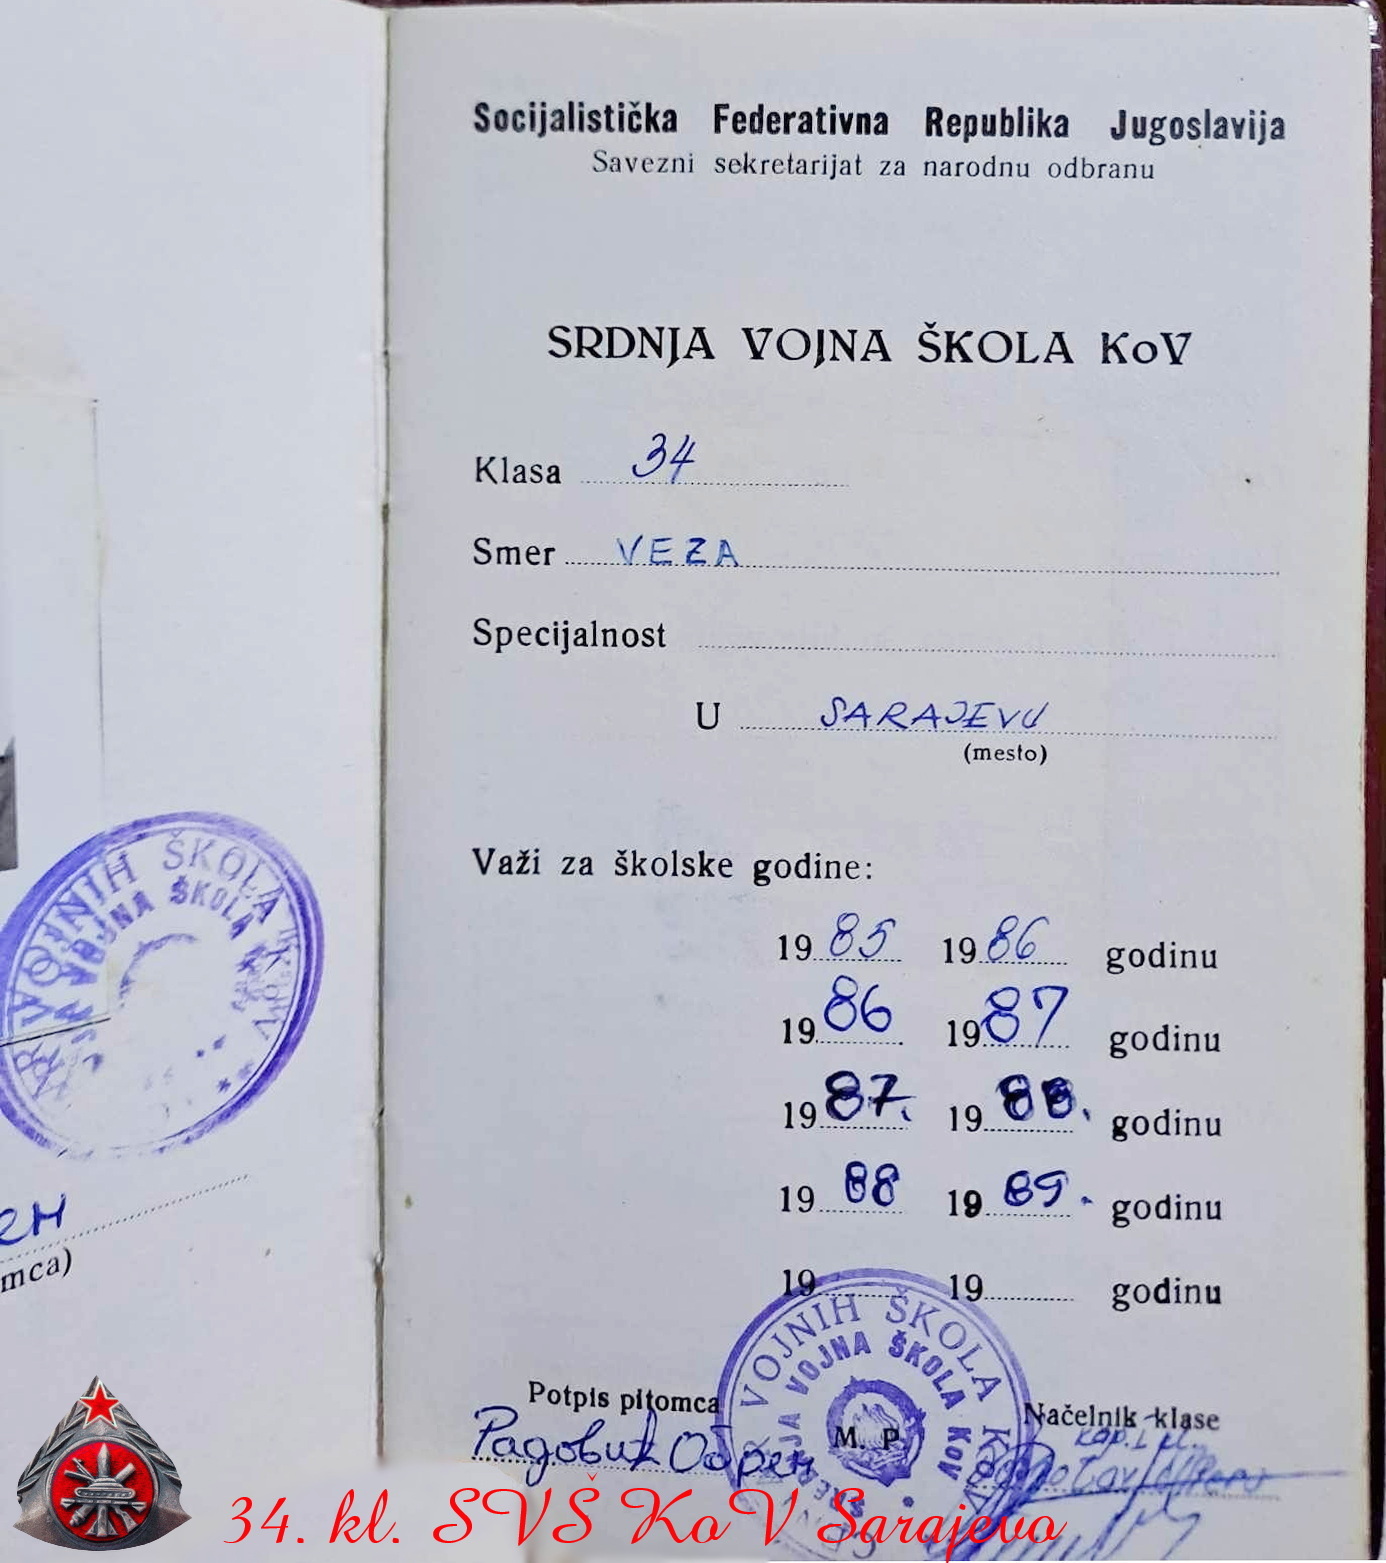 VOJNIH ŠKOLA KoV
VOJNA ŠKOLA
ен
mca)
Socijalistička Federativna Republika Jugoslavija
Savezni sekretarijat za narodnu odbranu
SRDNJA VOJNA ŠKOLA KoV
Klasa 34
Smer VEZA
Specijalnost
U SARAJEVU
(mesto)
Važi za školske godine:
1985 1986 godinu
1986 1987 godinu
1987. 1988. godinu
1988 1989. godinu
19 19 godinu
VOJNIH ŠKOLA KoV
VOJNA ŠKOLA KoV
Potpis pitomca
M. P.
Načelnik klase
34. kl. SVŠ KoV Sarajevo